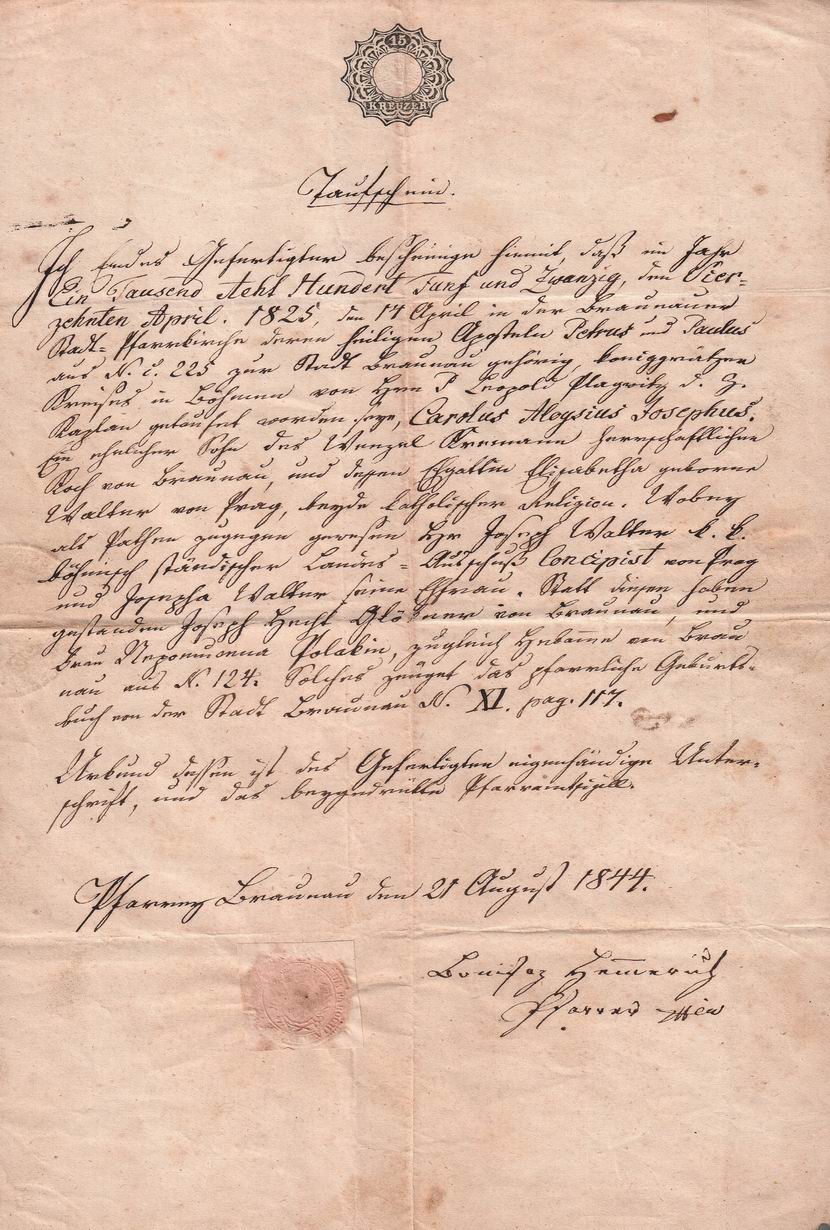 15
KREUZER
Taufschein.
Ich Endes Gefertigter bescheinige hiemit, daß im Jahr
Ein Tausend Acht Hundert Fünf und Zwanzig, den Vier-
zehnten April. 1825, den 14 April in der Braunauer
Stadt-Pfarrkirche deren heiligen Aposteln Petrus und Paulus
aus N. C. 225 zur Stadt Braunau gehörig, königgrätzer
Kreises in Böhmen von Hrn P Leopold Plagwitz d. Z.
Kaplan getaufet worden seye, Carolus Aloysius Josephus.
Ein ehelicher Sohn des Wenzel Kremann herrschaftlicher
Koch von Braunau, und dessen Ehgattin Elisabetha geborne
Walter von Prag, beyde katholischer Religion. Wobey
als Pathen zugegen gewesen Hr Joseph Walter k. k.
böhmisch ständischer Landes-Ausschuß Concipist von Prag
und Josepha Walter seine Ehfrau. Statt diesen haben
gestanden Joseph Hecht Glöckner von Braunau, und
Frau Nepomucena Polakin, zugleich Hebamme von Brau
nau aus N. 124. Solches zeuget das pfarrliche Geburts-
buch von der Stadt Braunau N. XI. pag. 117.
Urkund dessen ist des Gefertigten eigenhändige Unter-
schrift, und das beygedrückte Pfarramtsigill.
Pfarrey Braunau den 21 August 1844.
Bonifaz Hemmerich
Pfarrer